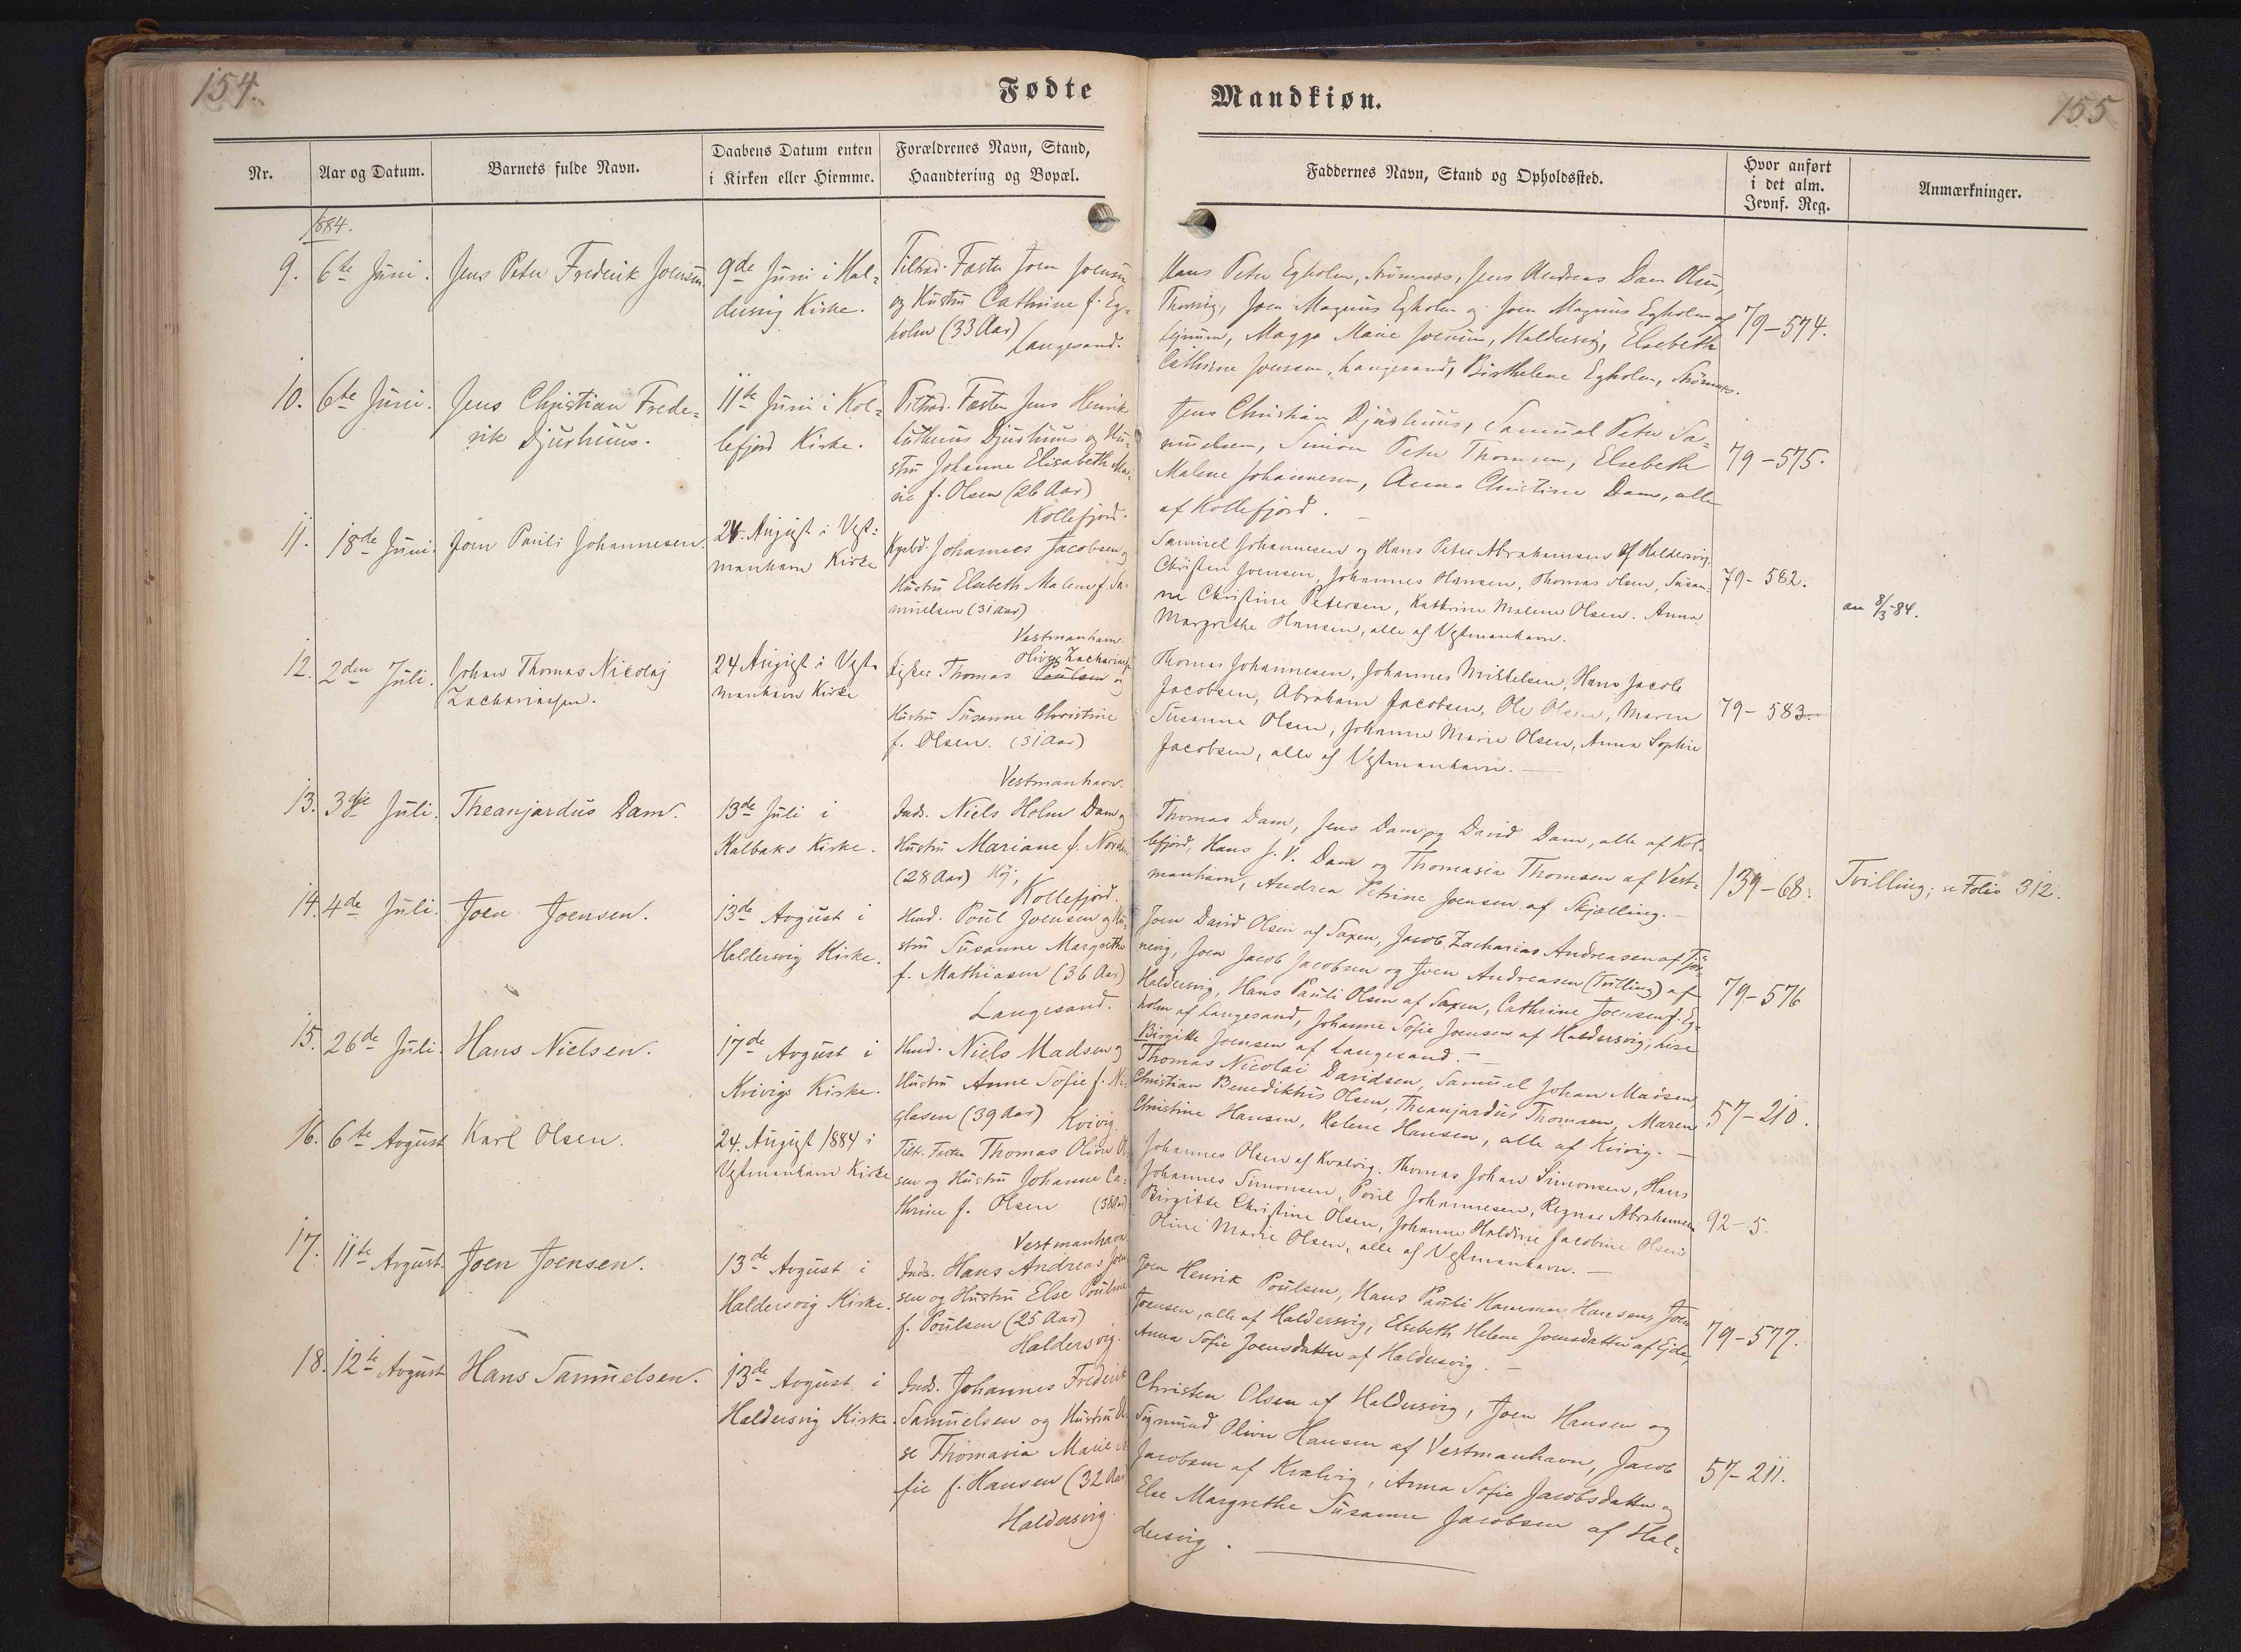 154.
Fødte
Nr.
Aar og Datum.
Barnets fulde Navn.
Daabens Datum enten
i Kirken eller Hiemme.
Forældrenes Navn, Stand,
Haandtering og Bopæl.
1884.
9.
6te Juni.
Jens Peter Frederik Joensen.
9de Juni i Hal-
dersvig Kirke.
Tiltræd. Fæster Joen Joensen
og Hustru Cathrine f. Eg-
holm (33 Aar)
Langesand.
10.
6te Juni.
Jens Christian Frede-
rik Djurhuus.
11te Juni i Kol-
lefjord Kirke.
Tiltræd. Fæster Jens Henrik
Lutherus Djurhuus og Hu-
stru Johanne Elisabeth Ma-
rie f. Olsen (26 Aar)
Kollefjord.
11.
18de Juni.
Joen Pauli Johannesen.
24. August i Vest-
manhavn Kirke
Johannes Jacobsen og
Hustru Elsebeth Malene f. Sa-
muelsen (31 Aar)
Vestmanhavn.
12.
2den Juli.
Johan Thomas Nicolaj
Zachariassen.
24 August i Vest-
manhavn Kirke
Fisker Thomas Poulsen og
Zachariassen
Hustru Susanne Christine
f. Olsen. (31 Aar)
Vestmanhavn.
13.
3die Juli.
Theanjardus Dam.
13de Juli i
Kalbaks Kirke.
Inds. Niels Holm Dam og
Hustru Mariane f. Norden
(28 Aar) Høj,
Kollefjord.
14.
4de Juli.
Joen Joensen.
13de August i
Haldersvig Kirke.
Hmd. Poul Joensen og Hu-
stru Susanne Margrethe
f. Mathiasen (36 Aar)
Langesand.
15.
26de Juli.
Hans Nielsen.
17de August i
Kvivigs Kirke.
Hmd. Niels Madsen og
Hustru Anne Sofie f. Ni-
glasen (39 Aar) Kvivig.
16.
6te August
Karl Olsen.
24. August 1884 i
Vestmanhavn Kirke
Tiltr. Fæster Thomas Oliver Ol-
sen og Hustru Johanne Ca-
thrine f. Olsen (38 Aar)
Vestmanhavn
17.
11te August.
Joen Joensen.
13de August i
Haldersvig Kirke.
Inds. Hans Andreas Joen-
sen og Hustru Else Pouline
f. Poulsen (25 Aar)
Haldersvig.
18.
12te August
Hans Samuelsen.
13de August i
Haldersvig Kirke.
Inds. Johannes Frederik
Samuelsen og Hustru El-
se Thomasia Marie
fie f. Hansen (32 Aar)
Haldersvig.
Mandkiøn.
155
Faddernes Navn, Stand og Opholdssted.
Hvor anført
i det alm.
Jevnf. Reg.
Anmærkninger.
Hans Peter Egholm, Strømnæs, Jens Andreas Dam Olsen,
Thorsvig, Joen Magnus Egholm og Joen Magnus Egholm af
Magga Marie Joensen, Haldersvig, Elsebeth
Cathrine Joensen, Langesand, Birthelene Egholm, Strømnæs.
79-574.
Jens Christian Djurhuus, Samuel Peter Sa-
muelsen, Simon Peter Thomsen, Elsebeth
Malene Johannesen, Anna Christine Dam, alle
af Kollefjord.
79-575.
Samuel Johannesen og Hans Peter Abrahamsen af Haldersvig.
Christen Joensen, Johannes Hansen, Thomas Olsen, Susan-
ne Christine Petersen, Kathrine Malene Olsen. Anna
Margrethe Hansen, alle af Vestmanhavn.
79-582.
an 8/3-84.
Thomas Johannesen, Johannes Mikkelsen, Hans Jacob
Jacobsen, Abraham Jacobsen, Ole Olsen, Maren
Susanne Olsen, Johanne Marie Olsen, Anna Sophie
Jacobsen, alle af Vestmanhavn.
79-583.
Thomas Dam, Jens Dam og David Dam, alle af Kol-
lefjord, Hans J. V. Dam og Thomasia Thomsen af Vest-
manhavn, Andrea Petrine Joensen af Skjælling.
139-68.
Tvilling; se Folio 312.
Joen David Olsen af Saxen, Jacob Zacharias Andreasen af Tjør-
nevig, Joen Jacob Jacobsen og Joen Andreasen (Tvilling) af
Haldersvig, Hans Pauli Olsen af Saxen, Cathrine Joensen f. Eg-
holm af Langesand, Johanne Sofie Joensen af Haldersvig, Lise
Birgitte Joensen af Langesand.
79-576
Thomas Nicolai Davidsen, Samuel Johan Madsen,
Christian Benedikthus Olsen, Theanjardus Thomsen, Maren
Christine Hansen, Helene Hansen, alle af Kvivig.
57-210.
Johannes Olsen af Kvalvig. Thomas Johan Simonsen, Hans
Johannes Simonsen, Poul Johannesen, Regnar Abrahamsen
Birgitte Christine Olsen, Johanne Haldine Jacobine Olsen
Oline Marie Olsen, alle af Vestmanhavn.
92-5
Joen Henrik Poulsen, Hans Pauli Hammer Hansen, Joen
Joensen, alle af Haldersvig, Elsebeth Helene Joensdatter af Ejde,
Anna Sofie Joensdatter af Haldersvig.
79-577.
Christen Olsen af Haldersvig, Joen Hansen og
Sigmund Oliver Hansen af Vestmanhavn, Jacob
Jacobsen af Kvalvig, Anna Sofie Jacobsdatter og
Else Margrethe Susanne Jacobsen af Hal-
dersvig.
57-211.